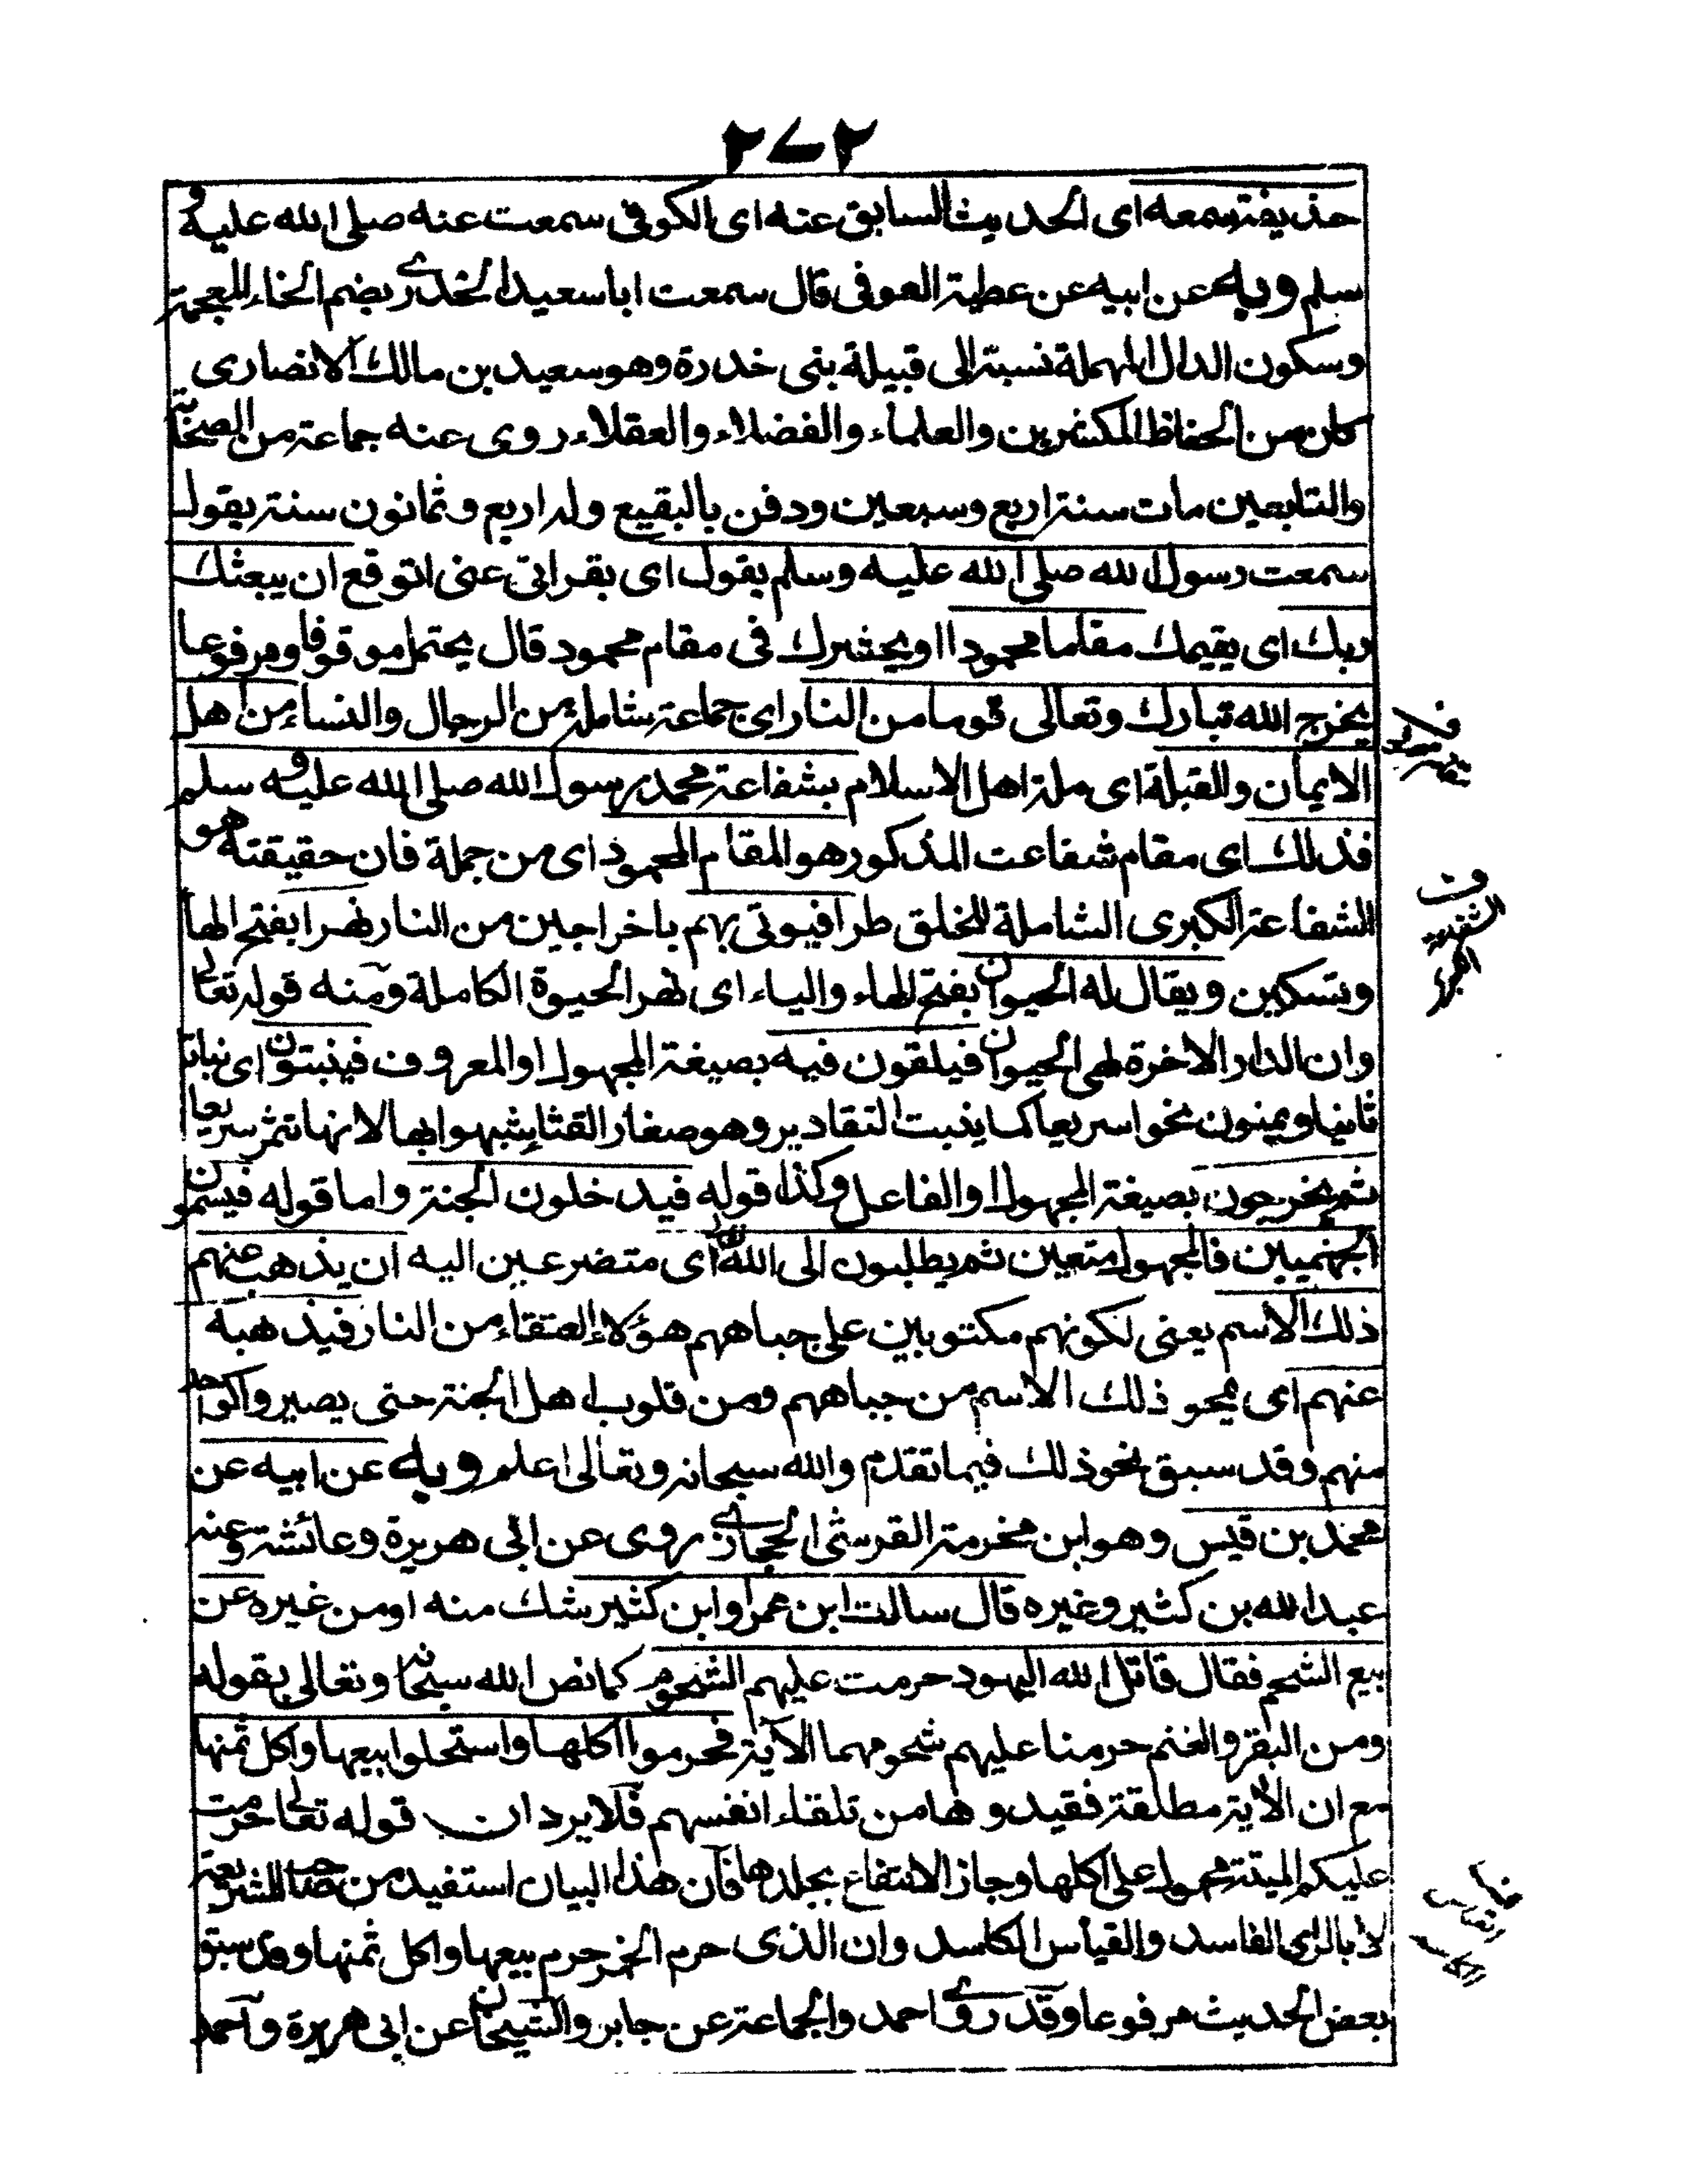 ٢٧٢
حذيفة سمعه اى الحديث السابق عنه اى الكوفى سمعت عنه صلى الله عليه و
سلم وبه عن ابيه عن عطية العوفى قال سمعت ابا سعيد الخدرى بضم الخاء المعجمة
وسكون الدال المهملة نسبة الى قبيلة بنى خدرة وهو سعيد بن مالك الانصارى
كان من الحفاظ المكثرين والعلماء والفضلاء والعقلاء روى عنه جماعة من الصحابة
والتابعين مات سنة اربع وسبعين ودفن بالبقيع وله اربع وثمانون سنة يقول
سمعت رسول الله صلى الله عليه وسلم يقول اى يقرا تى عنى اتوقع ان يبعثك
ربك اى يقيمك مقاما محمودا او يحشرك فى مقام محمود قال يحتمل موقوفا ومرفوعا
يخرج الله تبارك وتعالى قوما من النار اى جماعة شاملة من الرجال والنساء من اهل
الايمان والقبلة اى ملة اهل الاسلام بشفاعة محمد رسول الله صلى الله عليه و سلم
فذلك اى مقام شفاعت المذكور هو المقام المحمود اى من جملة فان حقيقته هو
الشفاعة الكبرى الشاملة للخلق طرا فيوتى بهم باخراجين من النار نهرا بفتح الها
وتسكين ويقال له الحيوان بفتح الهاء والياء اى نهر الحيوة الكاملة ومنه قوله تعالى
وان الدار الاخرة لهى الحيوان فيلقون فيه بصيغة المجهول او المعروف فينبتون اى نباتا
ثانيا ويمنون نحوا سريعا كما ينبت التقادير وهو صغار القثا شبهوا بها لانها تثمر سريعا
ثم يخرجون بصيغة المجهول والفاعل وكذا قوله فيدخلون الجنة واما قوله فيسمون
الجهنميين فالمجهول متعين ثم يطلبون الى الله تعالى اى متضرعين اليه ان يذهب عنهم
ذلك الاسم يعنى لكونهم مكتوبين على جباههم هؤلاء العتقاء من النار فيذهبه
عنهم اى يمحو ذلك الاسم من جباههم ومن قلوب اهل الجنة حتى يصيروا كواحد
منهم وقد سبق نحو ذلك فيما تقدم والله سبحانه وتعالى اعلم وبه عن ابيه عن
محمد بن قيس وهو ابن مخرمة القرشى الحجازى روى عن ابى هريرة وعائشة وعنه
عبد الله بن كثير وغيره قال سالت ابن عمر او ابن كثير شك منه او من غيره عن
بيع الشحم فقال قاتل الله اليهود حرمت عليهم الشحوم كما نص الله سبحانه وتعالى بقوله
ومن البقر والغنم حرمنا عليهم شحومهما الآية فحرموا اكلها واستحلوا بيعها واكل ثمنها
مع ان الآية مطلقة فقيدوها من تلقاء انفسهم فلا يرد ان قوله تعالى حرمت
عليكم الميتة محمول على اكلها وجاز الانتفاع بجلدها فان هذا البيان استفيد من صاحب الشريعة
لا بالراى الفاسد والقياس الكاسد وان الذى حرم الخمر حرم بيعها واكل ثمنها وقد سبق
بعض الحديث مرفوعا وقد روى احمد والجماعة عن جابر والشيخان عن ابى هريرة واحمد